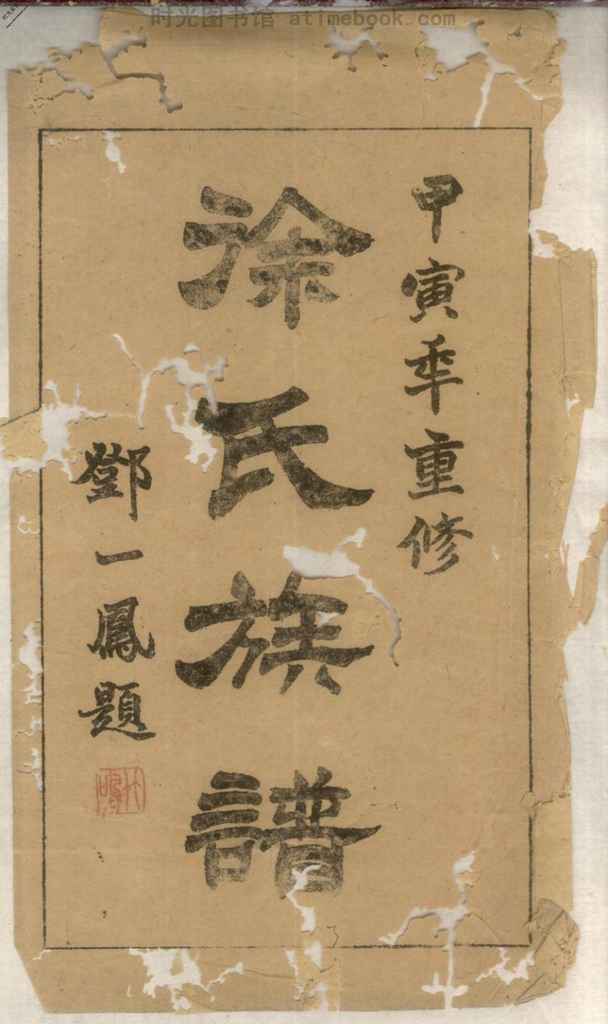 时光图书馆 atimebook.com
甲寅年重修
徐氏族譜
鄧一鳳題